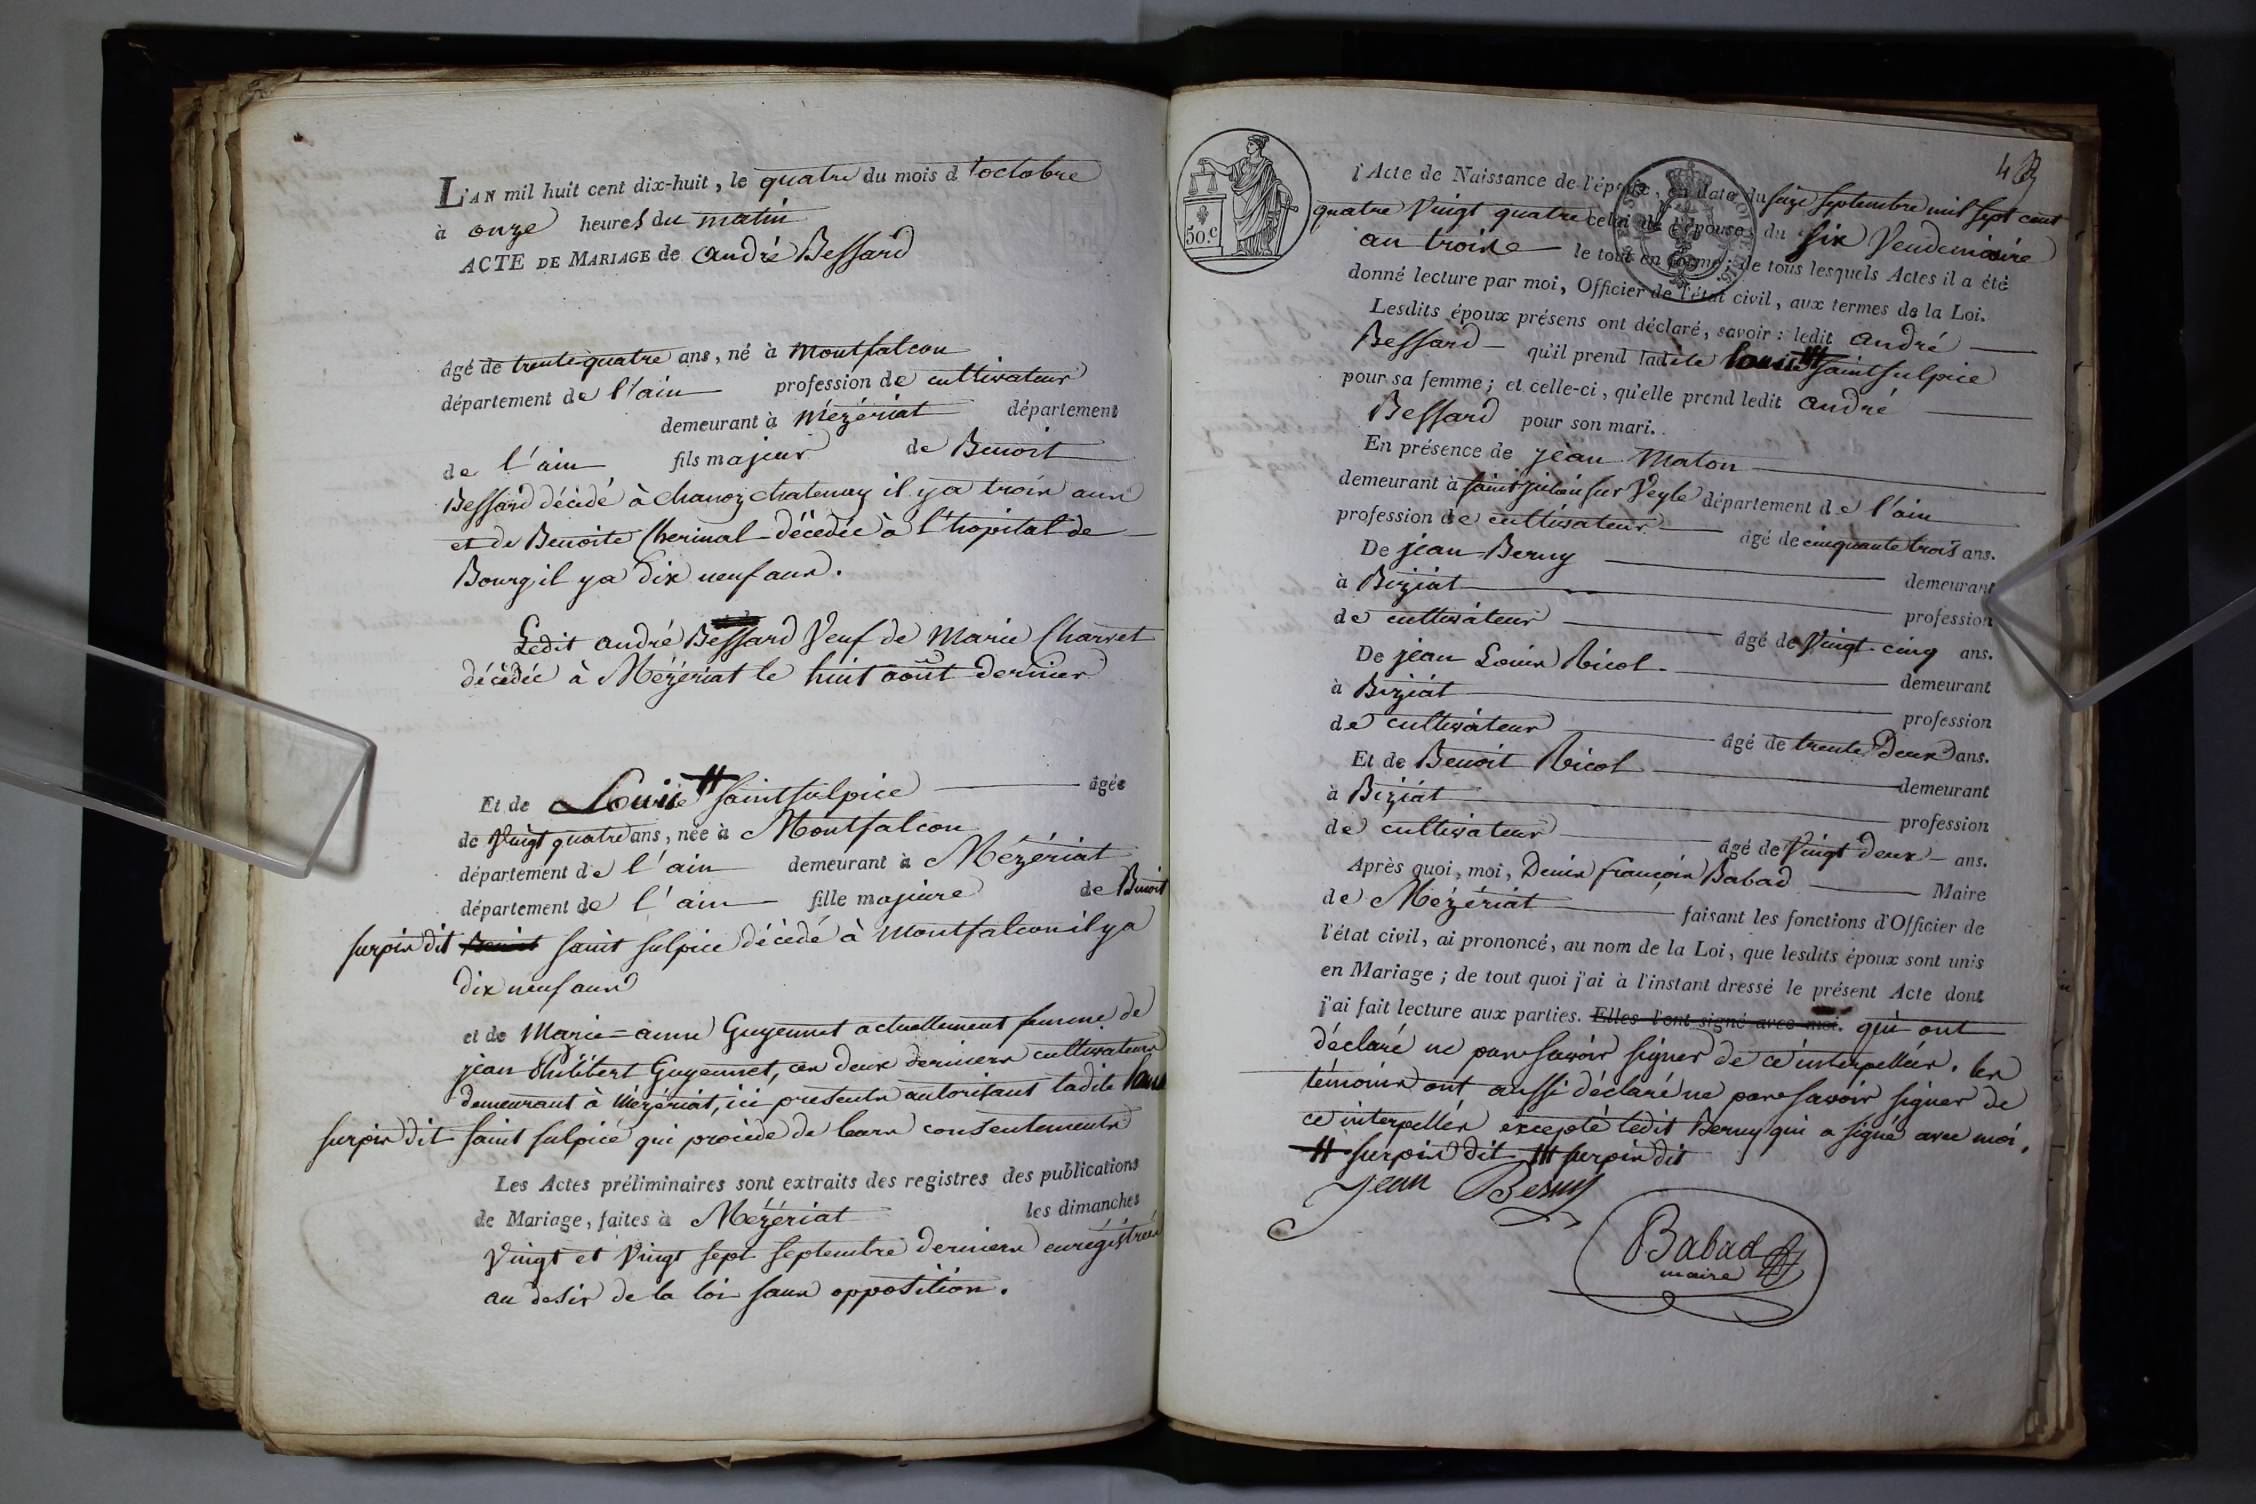 L'AN mil huit cent dix-huit, le quatre du mois d'octobre
à onze heures du matin
ACTE DE MARIAGE de andré Bessard
âgé de trente quatre ans, né à montfalcon
département de l'ain profession de cultivateur
demeurant à mézériat département
de l'ain fils majeur de Benoit
Bessard décédé à chanoz chatenay il y a trois ans
et de Benoite Cherinal décédée à l'hopital de
Bourg il y a dix neuf ans.
Ledit andré Bessard Veuf de Marie Charvet
décédée à Mézériat le huit août dernier
Et de Louise # saint sulpice âgée
de Vingt quatre ans, née à Montfalcon
département de l'ain demeurant à Mézériat
département de l'ain fille majeure de Benoit
surpin dit Benoit saint sulpice décédé à Montfalcon il y a
dix neuf ans
et de Marie=anne Guyennet actuellement femme de
jean Philibert Guyennet, ces deux derniers cultivateurs
demeurant à Mézériat, ici presents autorisant ladite
surpin dit saint sulpice qui procède de leurs consentements
Les Actes préliminaires sont extraits des registres des publications
de Mariage, faites à Mézériat les dimanches
Vingt et Vingt sept septembre derniers enrégistrées
au desir de la loi sans opposition.
50.c
l'Acte de Naissance de l'époux, en date du seize septembre mil sept cent
quatre Vingt quatre celui de l'épouse, du six Vendemiaire
an troise le tout en forme; de tous lesquels Actes il a été
donné lecture par moi, Officier de l'état civil, aux termes de la Loi.
Lesdits époux présens ont déclaré, savoir: ledit andré
Bessard qu'il prend ladite Louise ## saint sulpice
pour sa femme; et celle-ci, qu'elle prend ledit andré
Bessard pour son mari.
En présence de jean Maton
demeurant à saint julien sur Veyle département de l'ain
profession de cultivateur âgé de cinquante trois ans.
De jean Berny demeurant
à Biziat profession
de cultivateur âgé de Vingt cinq ans.
De jean Louis Ricol demeurant
à Biziat profession
de cultivateur âgé de trente Deux ans.
Et de Benoit Ricol demeurant
à Biziat profession
de cultivateur âgé de Vingt deux ans.
Après quoi, moi, Denis françois Babad Maire
de Mézériat faisant les fonctions d'Officier de
l'état civil, ai prononcé, au nom de la Loi, que lesdits époux sont unis
en Mariage; de tout quoi j'ai à l'instant dressé le présent Acte dont
j'ai fait lecture aux parties. Elles l'ont signé avec moi. qui ont
déclaré ne pas savoir signer de ce interpellés. les
témoins ont aussi déclaré ne pas savoir signer de
ce interpellés excepté ledit Berny qui a signé avec moi.
# surpin dit ## surpin dit
jean Berny
Babad
maire